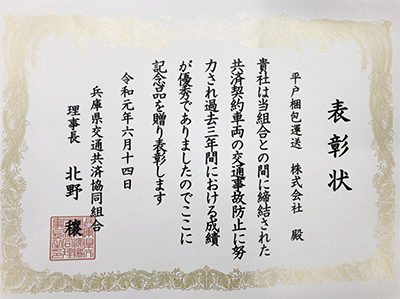 表彰状
平戸梱包運送 株式会社 殿
貴社は当組合との間に締結された
共済契約車両の交通事故防止に努
力され過去三年間における成績
が優秀でありましたのでここに
記念品を贈り表彰します
令和元年六月十四日
兵庫県交通共済協同組合
理事長 北野 穣